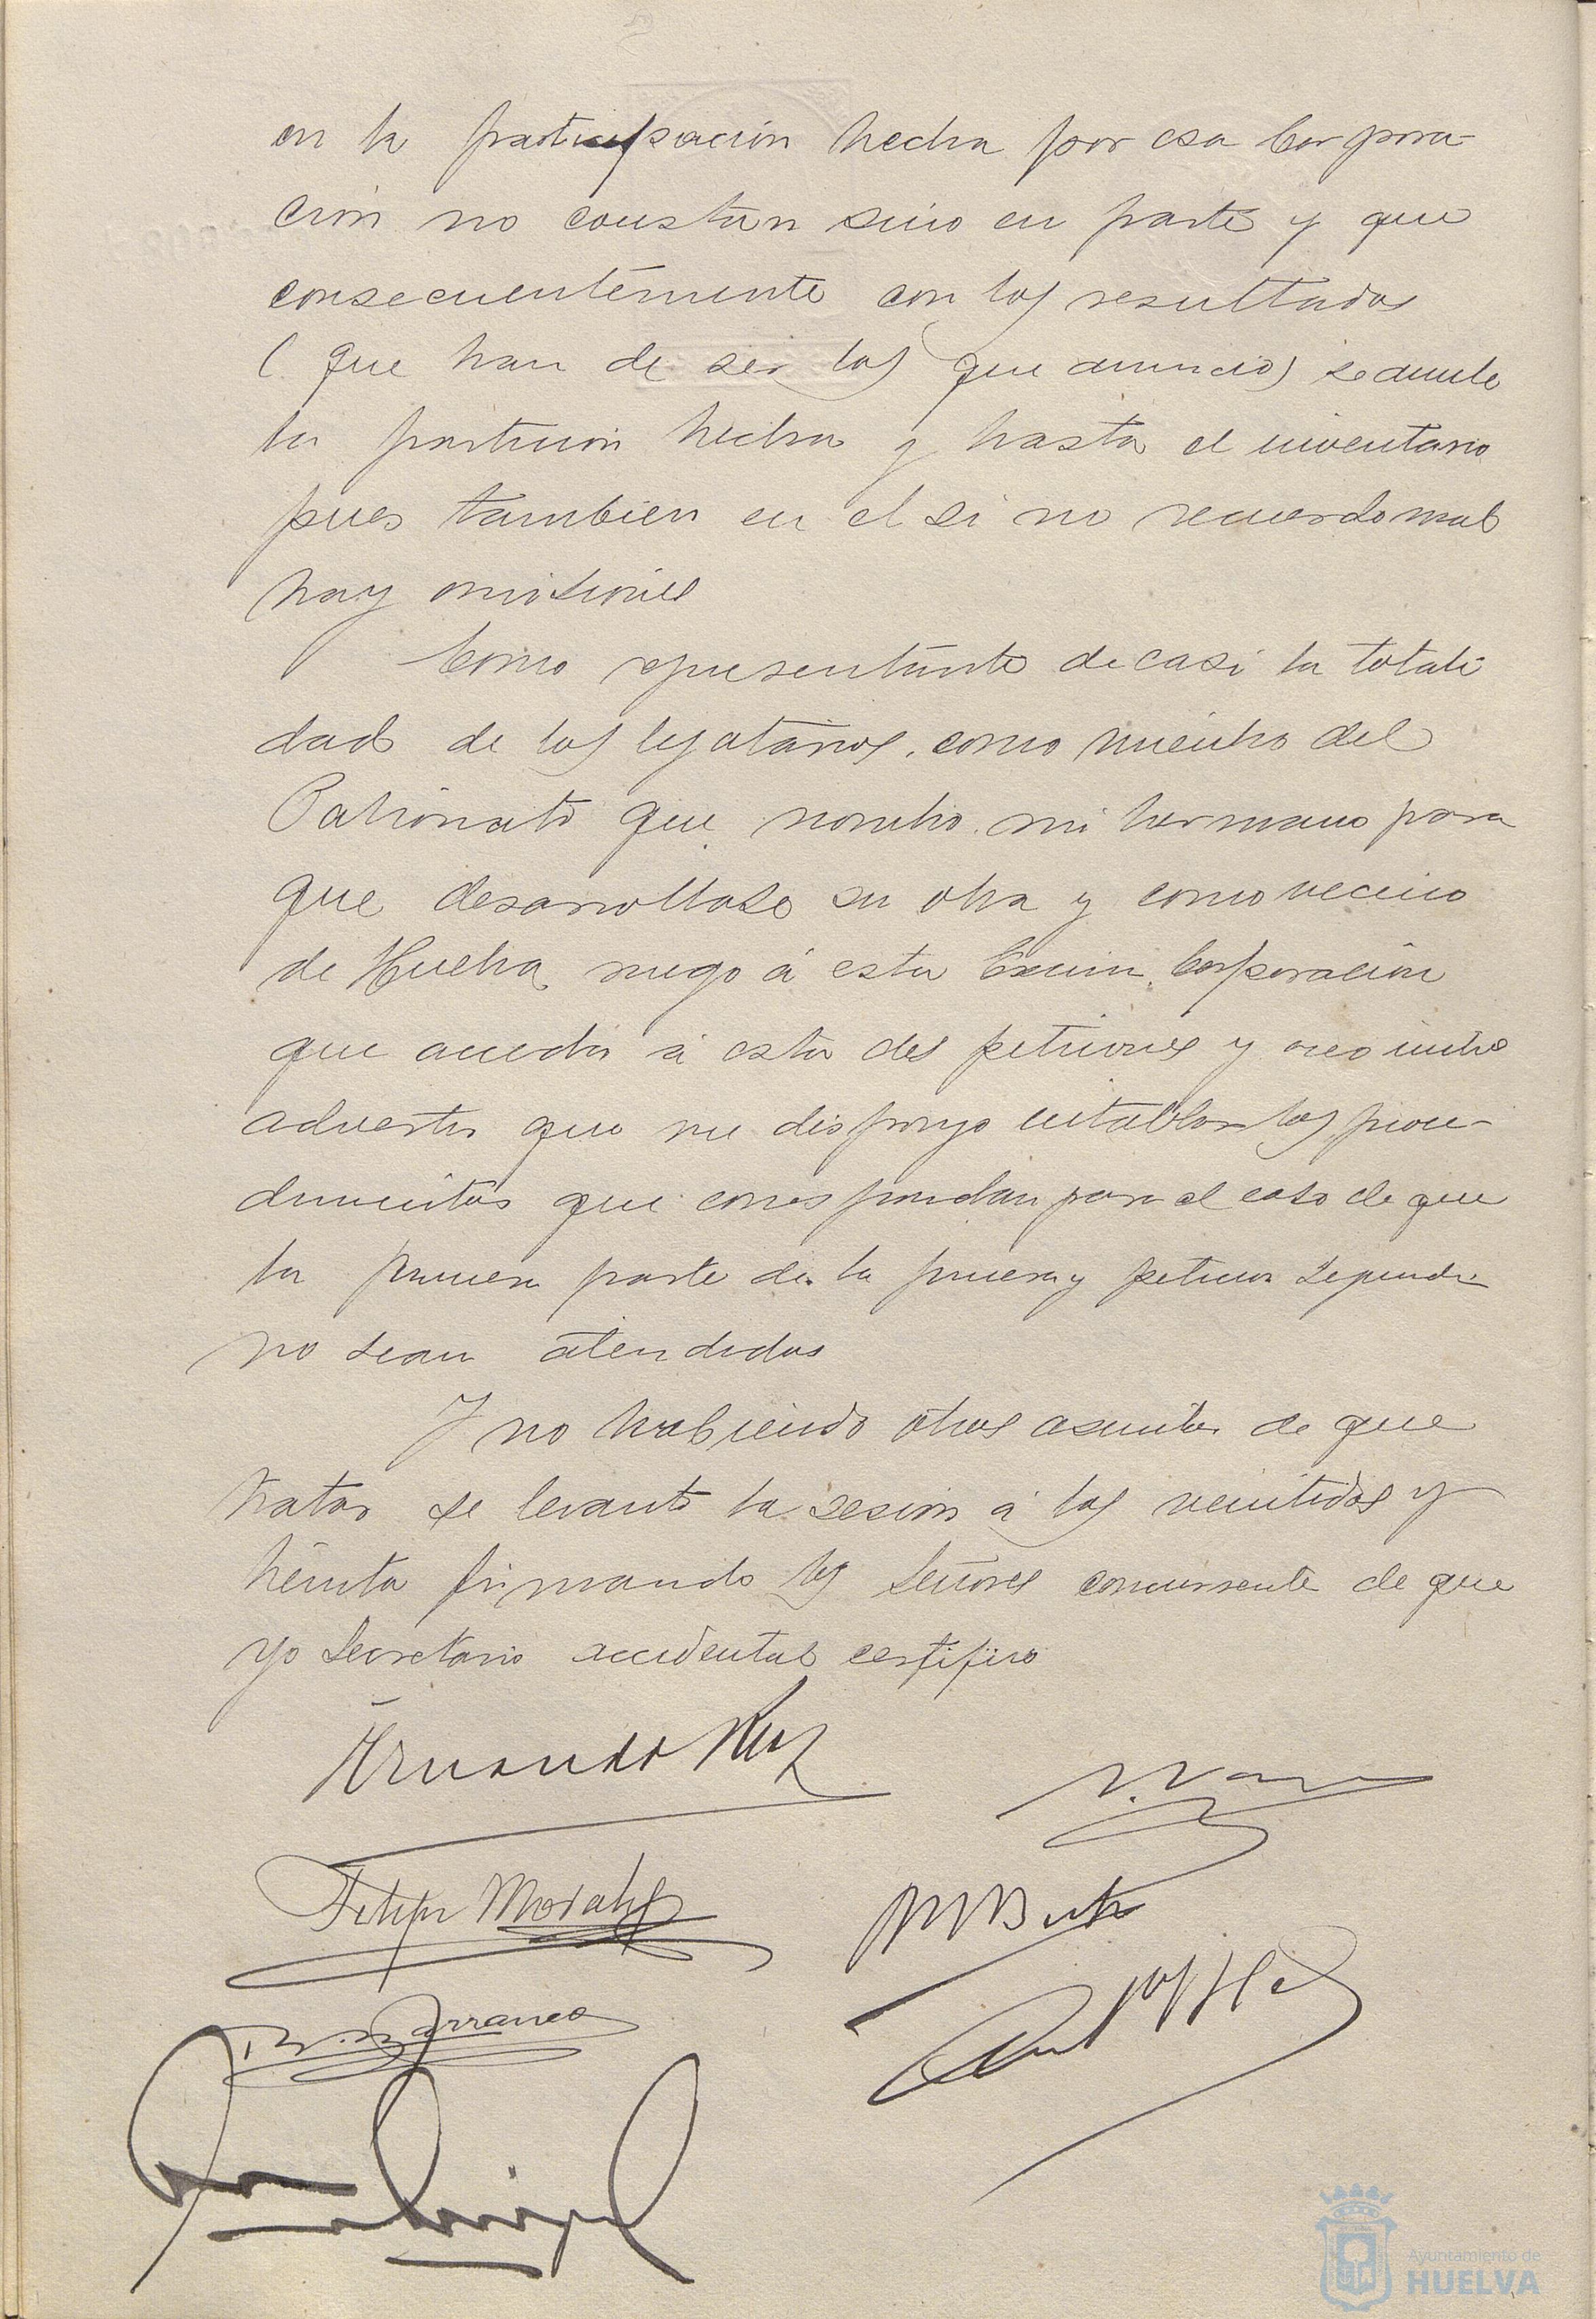 en la participación hecha por esa Corpora-
ción no constan sino en parte y que
consecuentemente con los resultados
(que han de ser los que anuncio) se anule
la partición hecha y hasta el inventario
pues tambien en el si no recuerdo mal
hay omisiones
Como representante de casi la totali
dad de los legatarios, como miembro del
Patronato que nombró mi hermano para
que desarrollase su obra y como vecino
de Huelva ruego á esta Excm. Corporación
que acceda á estas dos peticiones y creo
advertir que me dispongo entablar los proce-
dimientos que correspondan para el caso de que
la primera parte de la primera y petición segunda
no sean atendidas
Y no habiendo otros asuntos de que
tratar se levantó la sesión á las veintidos y
treinta firmando los Señores concurrentes de que
yo Secretario accidental certifico
Felipe Morales
Barranco
Ayuntamiento de
HUELVA